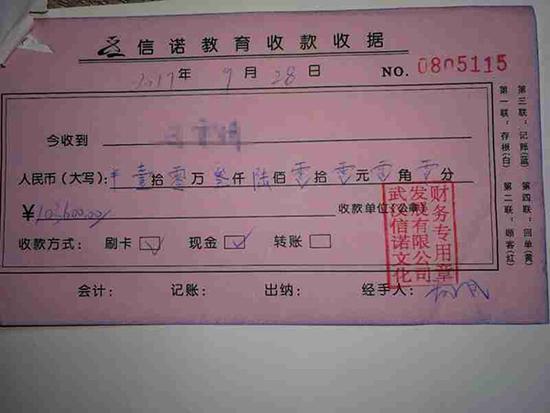 信诺教育收款收据
2017年9月28日 NO. 0805115
今收到
人民币(大写): 壹拾零万叁仟陆佰零拾零元零角零分
¥103600.00 收款单位(公章)
收款方式: 刷卡 现金 转账
会计: 记账: 出纳: 经手人:
武汉信诺文化
发展有限公司
财务专用章
第一联:存根(白) 第二联:顾客(红)
第三联:记账(蓝) 第四联:回单(黄)